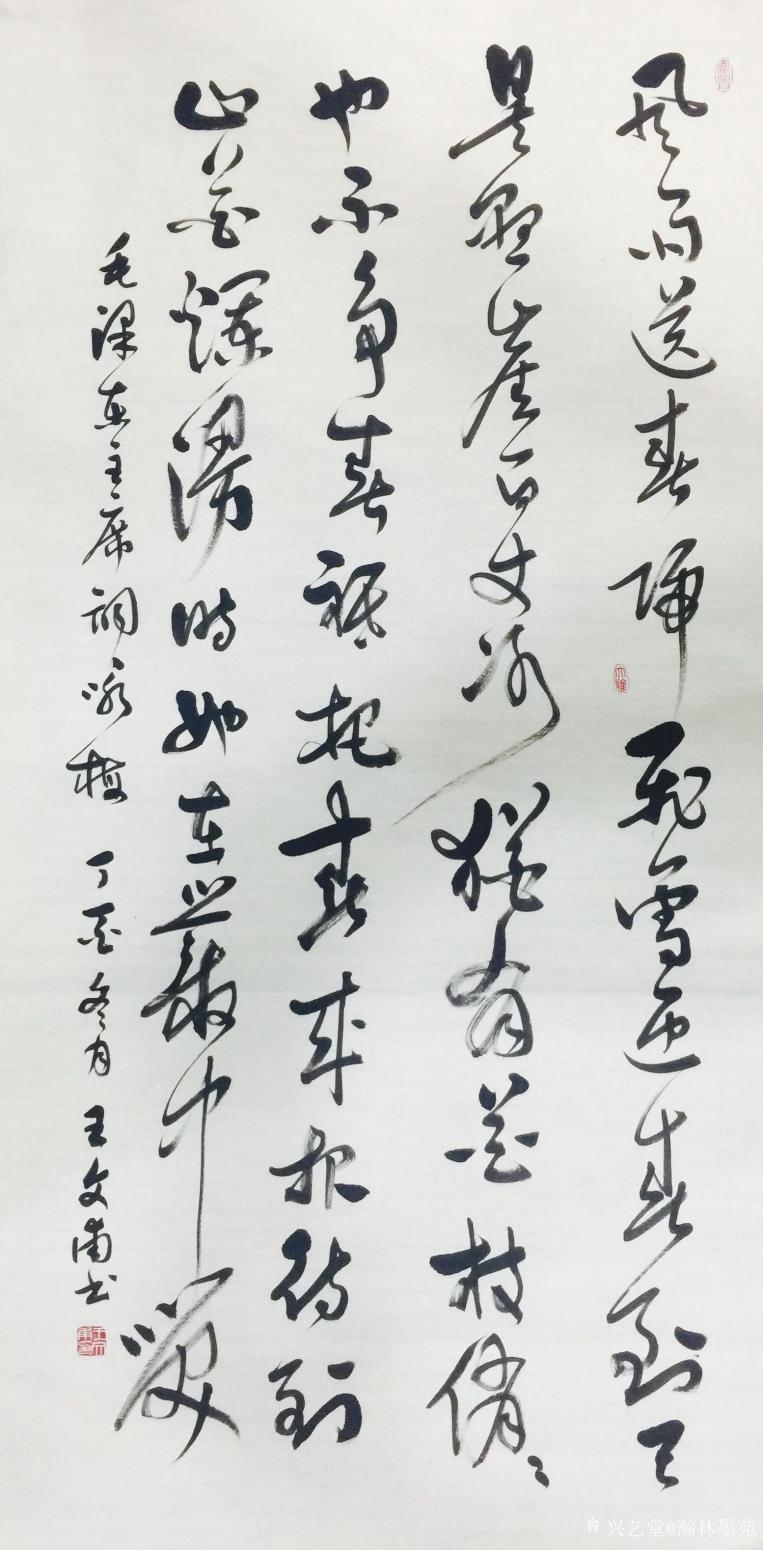 風雨送春歸飛雪迎春到已
是懸崖百丈冰猶有花枝俏々
也不争春祇把春来报待到
山花爛漫时她在叢中笑
毛泽东主席词咏梅 丁酉冬月 王文甫书
兴艺堂@瀚林墨苑